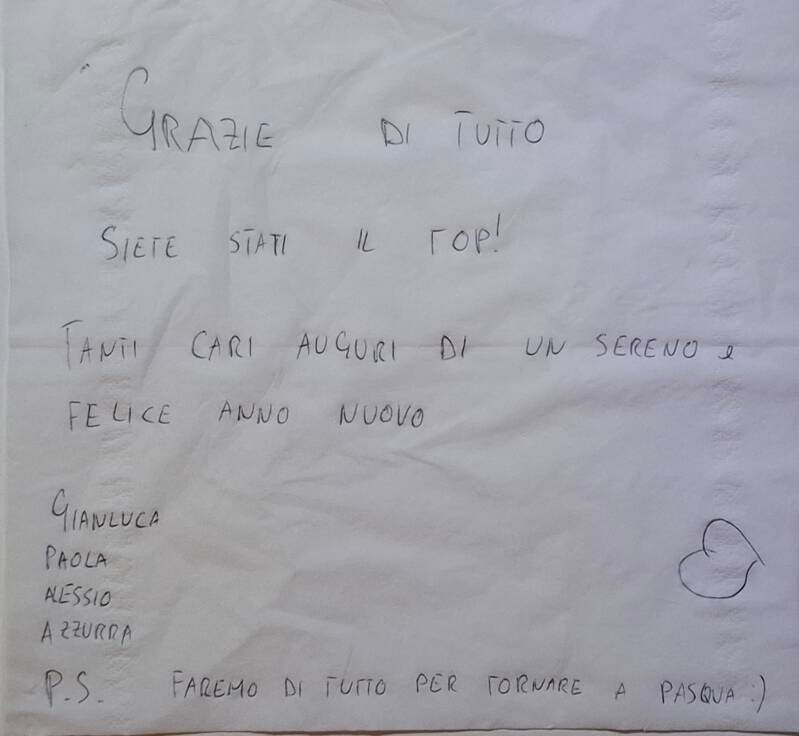 GRAZIE DI TUTTO
SIETE STATI IL TOP!
TANTI CARI AUGURI DI UN SERENO e
FELICE ANNO NUOVO
GIANLUCA
PAOLA
ALESSIO
AZZURRA
P.S. FAREMO DI TUTTO PER TORNARE A PASQUA :)